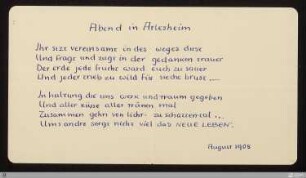 Abend in Arlesheim
Ihr sizt vereinsame in des weges diese
Und fragt und sagt in der gedanken trauer
Der erde jede frucht ward euch zu sauer
Und jeder trieb zu wild für seine
In haltung die uns werk und traum gegeben
Und aller küsse aller tränen mal
Zusammen gehn von licht zu schattental ..
Ums andre sorgt nicht viel das NEUE LEBEN.
August 1908